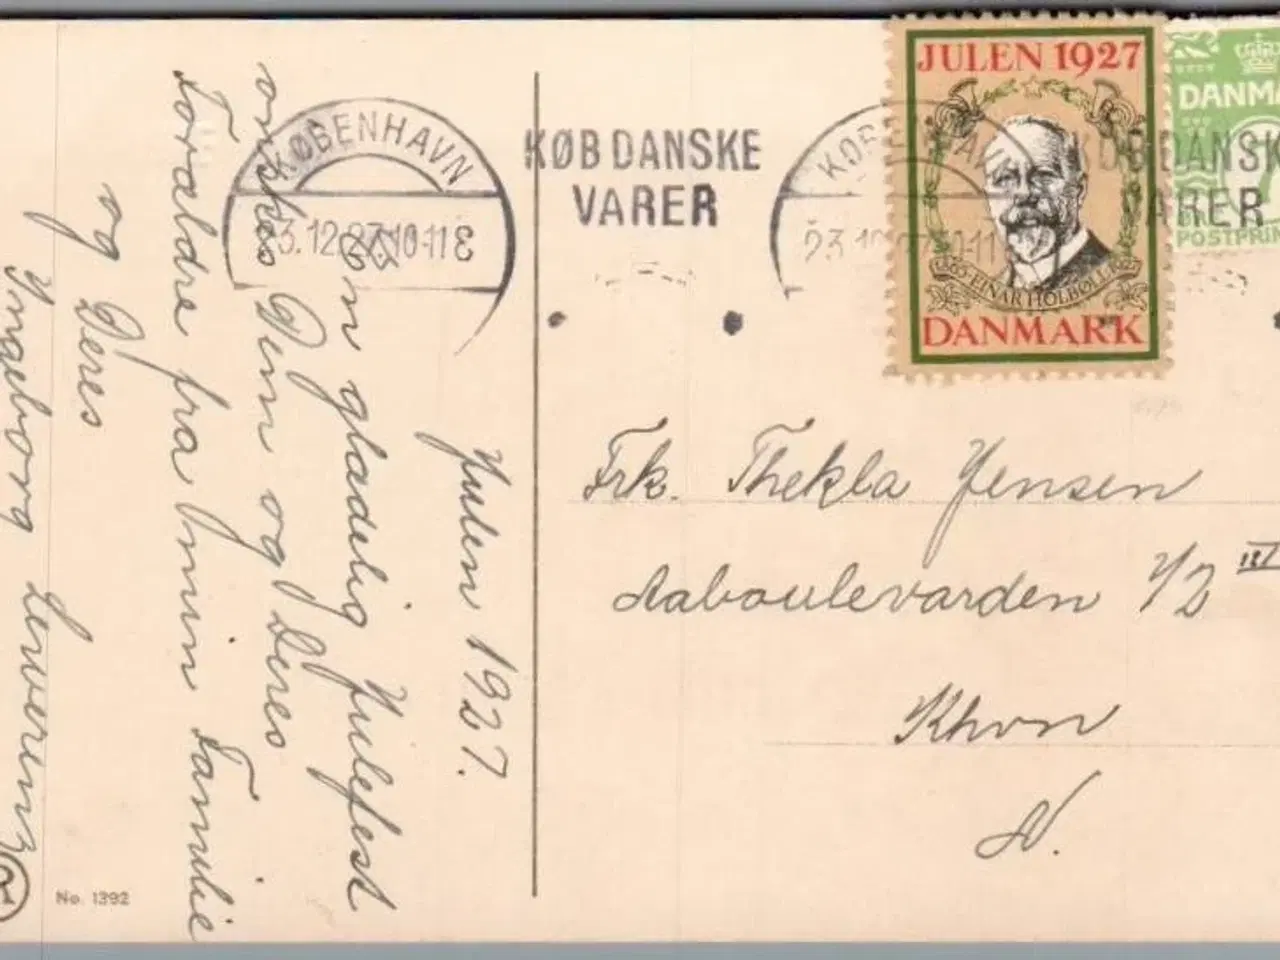 KØBENHAVN
23.12.27.10-11 E
KØB DANSKE
VARER
KØBENHAVN
23.12.27.10-11
KØB DANSK
VARER
JULEN 1927
65 · EINAR HOLBØLL
DANMARK
DANMA
POSTPRIN
Julen 1927.
En glædelig Julefest
ønskes Dem og Deres
Forældre fra min Familie
og Deres
Ingeborg
Frk. Thekla Jensen
Aaboulevarden 1/2
Khvn
N.
No. 1392